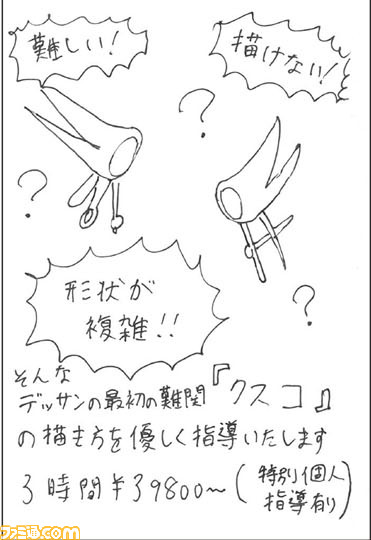 難しい!
描けない!
?
?
?
形状が
複雑!!
そんな
デッサンの最初の難関『クスコ』
の描き方を優しく指導いたします
3時間¥39800～(特別個人
指導有り)
ファミ通.com